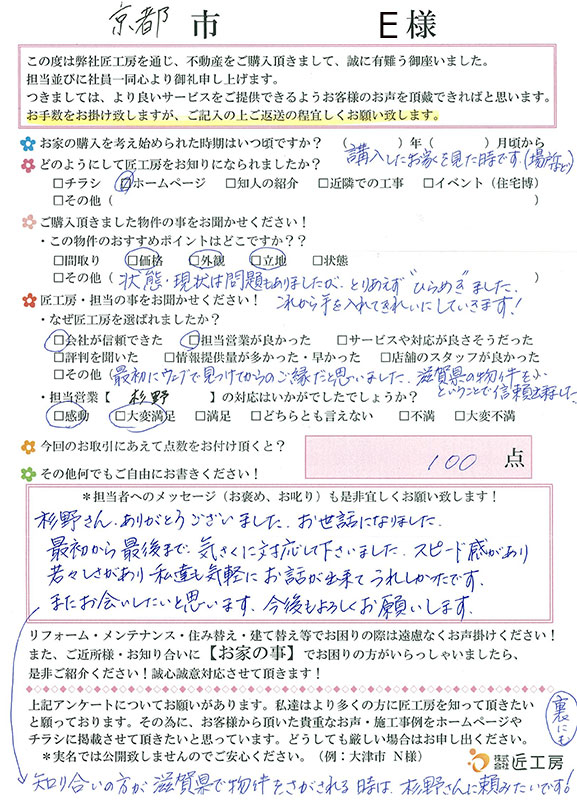 京都 市 E 様
この度は弊社匠工房を通じ、不動産をご購入頂きまして、誠に有難う御座いました。
担当並びに社員一同心より御礼申し上げます。
つきましては、より良いサービスをご提供できるようお客様のお声を頂戴できればと思います。
お手数をお掛け致しますが、ご記入の上ご返送の程宜しくお願い致します。
お家の購入を考え始められた時期はいつ頃ですか？ （ ）年（ ）月頃から
購入したお家を見た時です（場所など）
どのようにして匠工房をお知りになられましたか？
□チラシ □ホームページ □知人の紹介 □近隣での工事 □イベント（住宅博）
□その他（ ）
ご購入頂きました物件の事をお聞かせください！
・この物件のおすすめポイントはどこですか？？
□間取り □価格 □外観 □立地 □状態
□その他（状態・現状は問題もありましたが、とりあえず"ひらめき"ました。）
これから手を入れてきれいにしていきます！
匠工房・担当の事をお聞かせください！
・なぜ匠工房を選ばれましたか？
□会社が信頼できた □担当営業が良かった □サービスや対応が良さそうだった
□評判を聞いた □情報提供量が多かった・早かった □店舗のスタッフが良かった
□その他（最初にウェブで見つけてからのご縁だと思いました。滋賀県の物件を
ということで信頼出来ました
・担当営業【 杉野 】の対応はいかがでしたでしょうか？
□感動 □大変満足 □満足 □どちらとも言えない □不満 □大変不満
今回のお取引にあえて点数をお付け頂くと？
100 点
その他何でもご自由にお書きください！
＊担当者へのメッセージ（お褒め、お叱り）も是非宜しくお願い致します！
杉野さん、ありがとうございました。お世話になりました。
最初から最後まで、気さくに対応して下さいました。スピード感があり
若々しさがあり私達も気軽にお話が出来てうれしかったです。
またお会いしたいと思います。今後もよろしくお願いします。
リフォーム・メンテナンス・住み替え・建て替え等でお困りの際は遠慮なくお声掛けください！
また、ご近所様・お知り合いに【お家の事】でお困りの方がいらっしゃいましたら、
是非ご紹介ください！誠心誠意対応させて頂きます！
上記アンケートについてお願いがあります。私達はより多くの方に匠工房を知って頂きたい
と願っております。その為に、お客様から頂いた貴重なお声・施工事例をホームページや
チラシに掲載させて頂きたいと思っています。どうしても厳しい場合はお申し出ください。
＊実名では公開致しませんのでご安心ください。（例：大津市 N様）
裏にも
株式会社 匠工房
知り合いの方が滋賀県で物件をさがされる時は、杉野さんに頼みたいです！